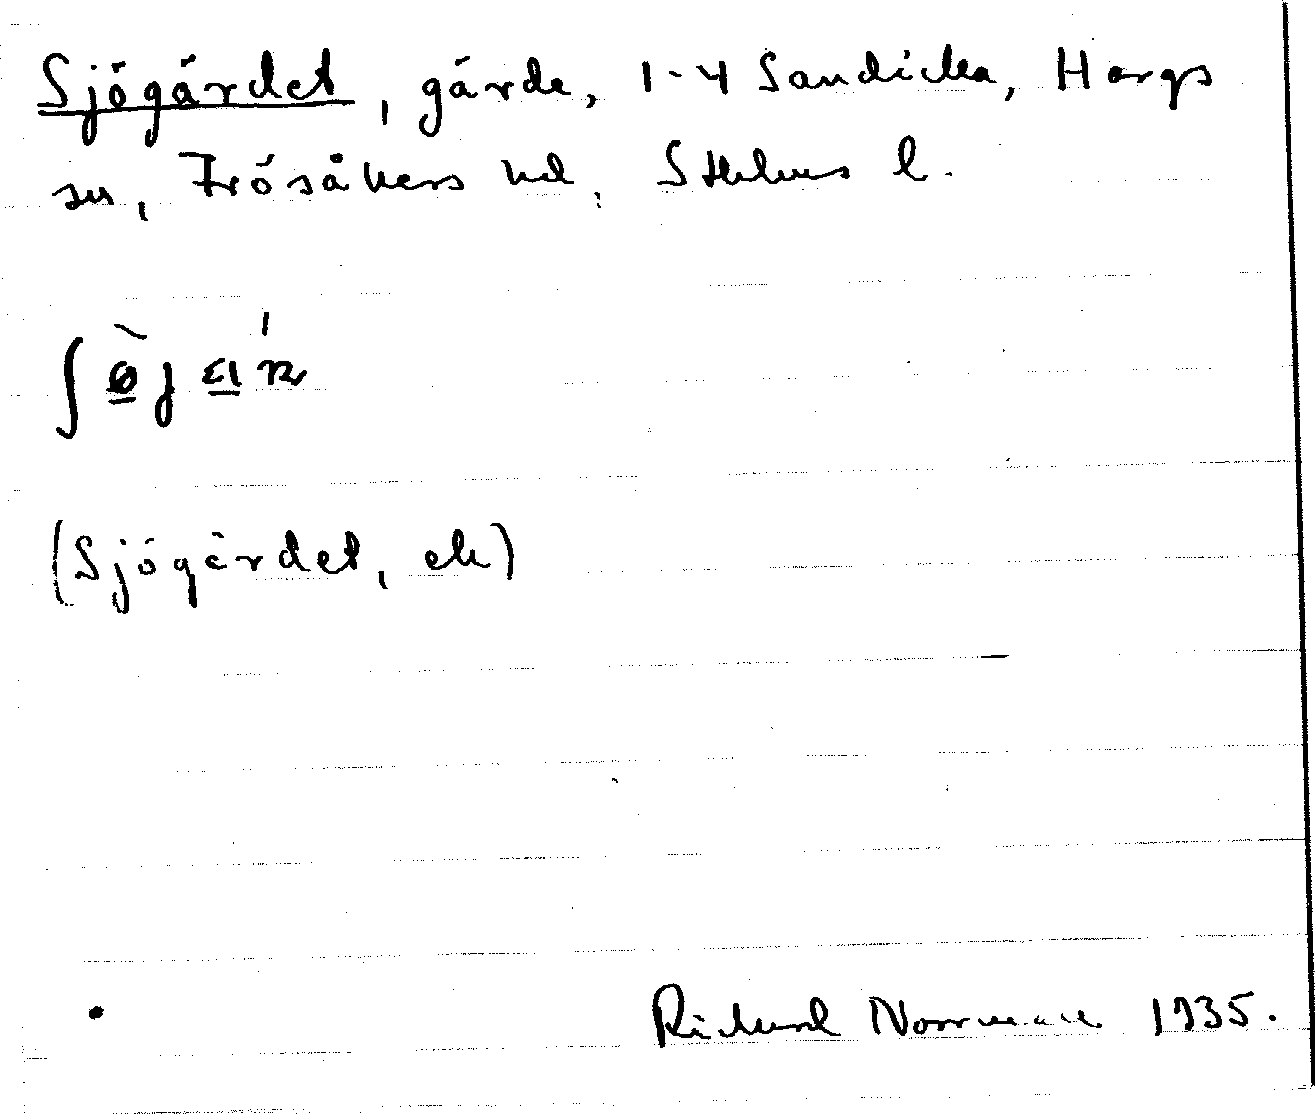 Sjögärdet, gärde, 1-4 Sandika, Hargs
sn, Frösåkers hd, Sthlms l.
(Sjögärdet, ek)
Richard Norrman 1935.